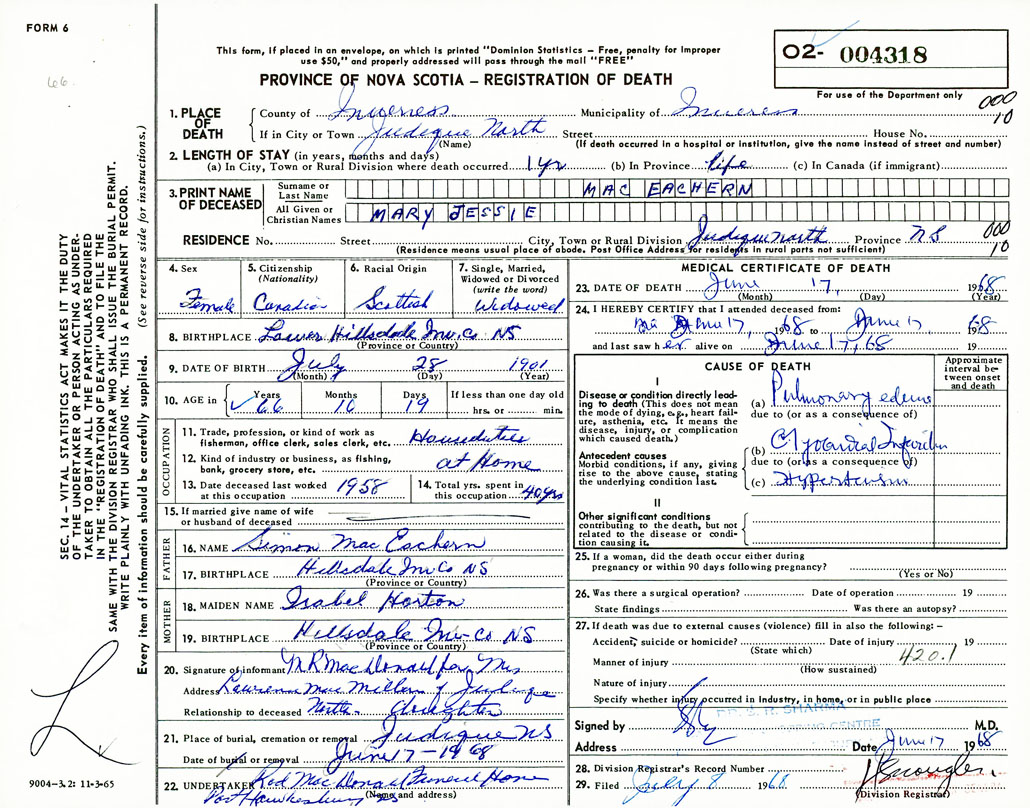 FORM 6
66
This form, if placed in an envelope, on which is printed "Dominion Statistics – Free, penalty for improper
use $50," and properly addressed will pass through the mail "FREE"
PROVINCE OF NOVA SCOTIA – REGISTRATION OF DEATH
02- 004318
For use of the Department only
000
10
1. PLACE OF DEATH
County of Inverness Municipality of Inverness
If in City or Town Judique North Street House No.
(Name) (If death occurred in a hospital or institution, give the name instead of street and number)
2. LENGTH OF STAY (in years, months and days)
(a) In City, Town or Rural Division where death occurred 1 yr (b) In Province life (c) In Canada (if immigrant)
3. PRINT NAME OF DECEASED
Surname or Last Name MAC EACHERN
All Given or Christian Names MARY JESSIE
RESIDENCE No. Street City, Town or Rural Division Judique north Province NS
000
10
(Residence means usual place of abode. Post Office Address for residents in rural parts not sufficient)
4. Sex
Female
5. Citizenship
(Nationality)
Canadian
6. Racial Origin
Scottish
7. Single, Married,
Widowed or Divorced
(write the word)
Widowed
8. BIRTHPLACE Lower Hillsdale Inv. Co NS
(Province or Country)
9. DATE OF BIRTH July 28 1901
(Month) (Day) (Year)
10. AGE in Years Months Days If less than one day old
66 10 19 hrs. or min.
OCCUPATION
11. Trade, profession, or kind of work as
fisherman, office clerk, sales clerk, etc. Houseduties
12. Kind of industry or business, as fishing,
bank, grocery store, etc. at Home
13. Date deceased last worked
at this occupation 1958
14. Total yrs. spent in
this occupation 40 yrs
15. If married give name of wife
or husband of deceased
FATHER
16. NAME Simon Mac Eachern
17. BIRTHPLACE Hillsdale Inv Co NS
(Province or Country)
MOTHER
18. MAIDEN NAME Isabel Horton
19. BIRTHPLACE Hillsdale Inv. Co NS
(Province or Country)
20. Signature of informant M R MacDonald for Mrs
Address Lawrence Mac Millan Judique
Relationship to deceased North - daughter
21. Place of burial, cremation or removal Judique NS
Date of burial or removal June 17 – 1968
22. UNDERTAKER Rod MacDonald Funeral Home
Port Hawkesbury NS
(Name and address)
MEDICAL CERTIFICATE OF DEATH
23. DATE OF DEATH June 17, 1968
(Month) (Day) (Year)
24. I HEREBY CERTIFY that I attended deceased from:
June 17 1968 to June 17 1968
and last saw her alive on June 17, 68 19
CAUSE OF DEATH
Approximate interval between onset and death
I
Disease or condition directly leading
to death (This does not mean
the mode of dying, e.g., heart failure,
asthenia, etc. It means the
disease, injury, or complication
which caused death.)
(a) Pulmonary edema
due to (or as a consequence of)
Antecedent causes
Morbid conditions, if any, giving
rise to the above cause, stating
the underlying condition last.
(b) Myocardial Infarction
due to (or as a consequence of)
(c) Hypertension
II
Other significant conditions
contributing to the death, but not
related to the disease or condition
causing it.
25. If a woman, did the death occur either during
pregnancy or within 90 days following pregnancy?
(Yes or No)
26. Was there a surgical operation? Date of operation 19
State findings Was there an autopsy?
27. If death was due to external causes (violence) fill in also the following: –
Accident, suicide or homicide? Date of injury 19
(State which)
420.1
Manner of injury
(How sustained)
Nature of injury
Specify whether injury occurred in Industry, in home, or in public place
DR. S. R. SHARMA
CENTRE
Signed by M.D.
Address Date June 17 1968
28. Division Registrar's Record Number
29. Filed July 8 1968
(Division Registrar)
SEC. 14 – VITAL STATISTICS ACT MAKES IT THE DUTY
OF THE UNDERTAKER OR PERSON ACTING AS UNDERTAKER
TO OBTAIN ALL THE PARTICULARS REQUIRED
IN THE "REGISTRATION OF DEATH" AND TO FILE THE
SAME WITH THE DIVISION REGISTRAR WHO SHALL ISSUE THE BURIAL PERMIT.
WRITE PLAINLY WITH UNFADING INK. THIS IS A PERMANENT RECORD.
Every item of information should be carefully supplied. (See reverse side for instructions.)
9004–3.2: 11-3-65